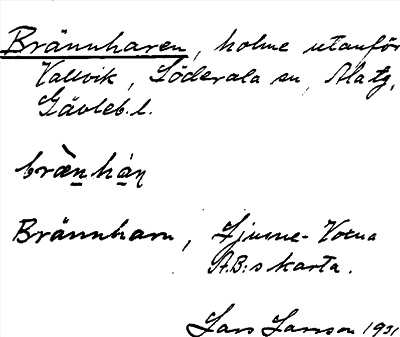 Brännharen, holme utanför
Vallvik, Söderala sn, Ala tg,
Gävleb. l.
bræ̀nhán
Brännharn, Ljusne-Voxna
A.B:s karta.
Lars Larsson 1931